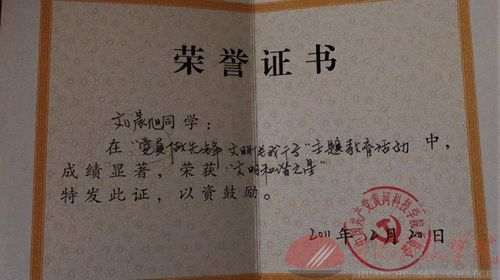 荣誉证书
刘晨旭同学：
在“党员做先锋 文明在我行”主题教育活动中，
成绩显著，荣获“文明和谐之星”
特发此证，以资鼓励。
中国共产党黄河科技学院
2011年12月20日
HUANGHE S&T COLLEGE